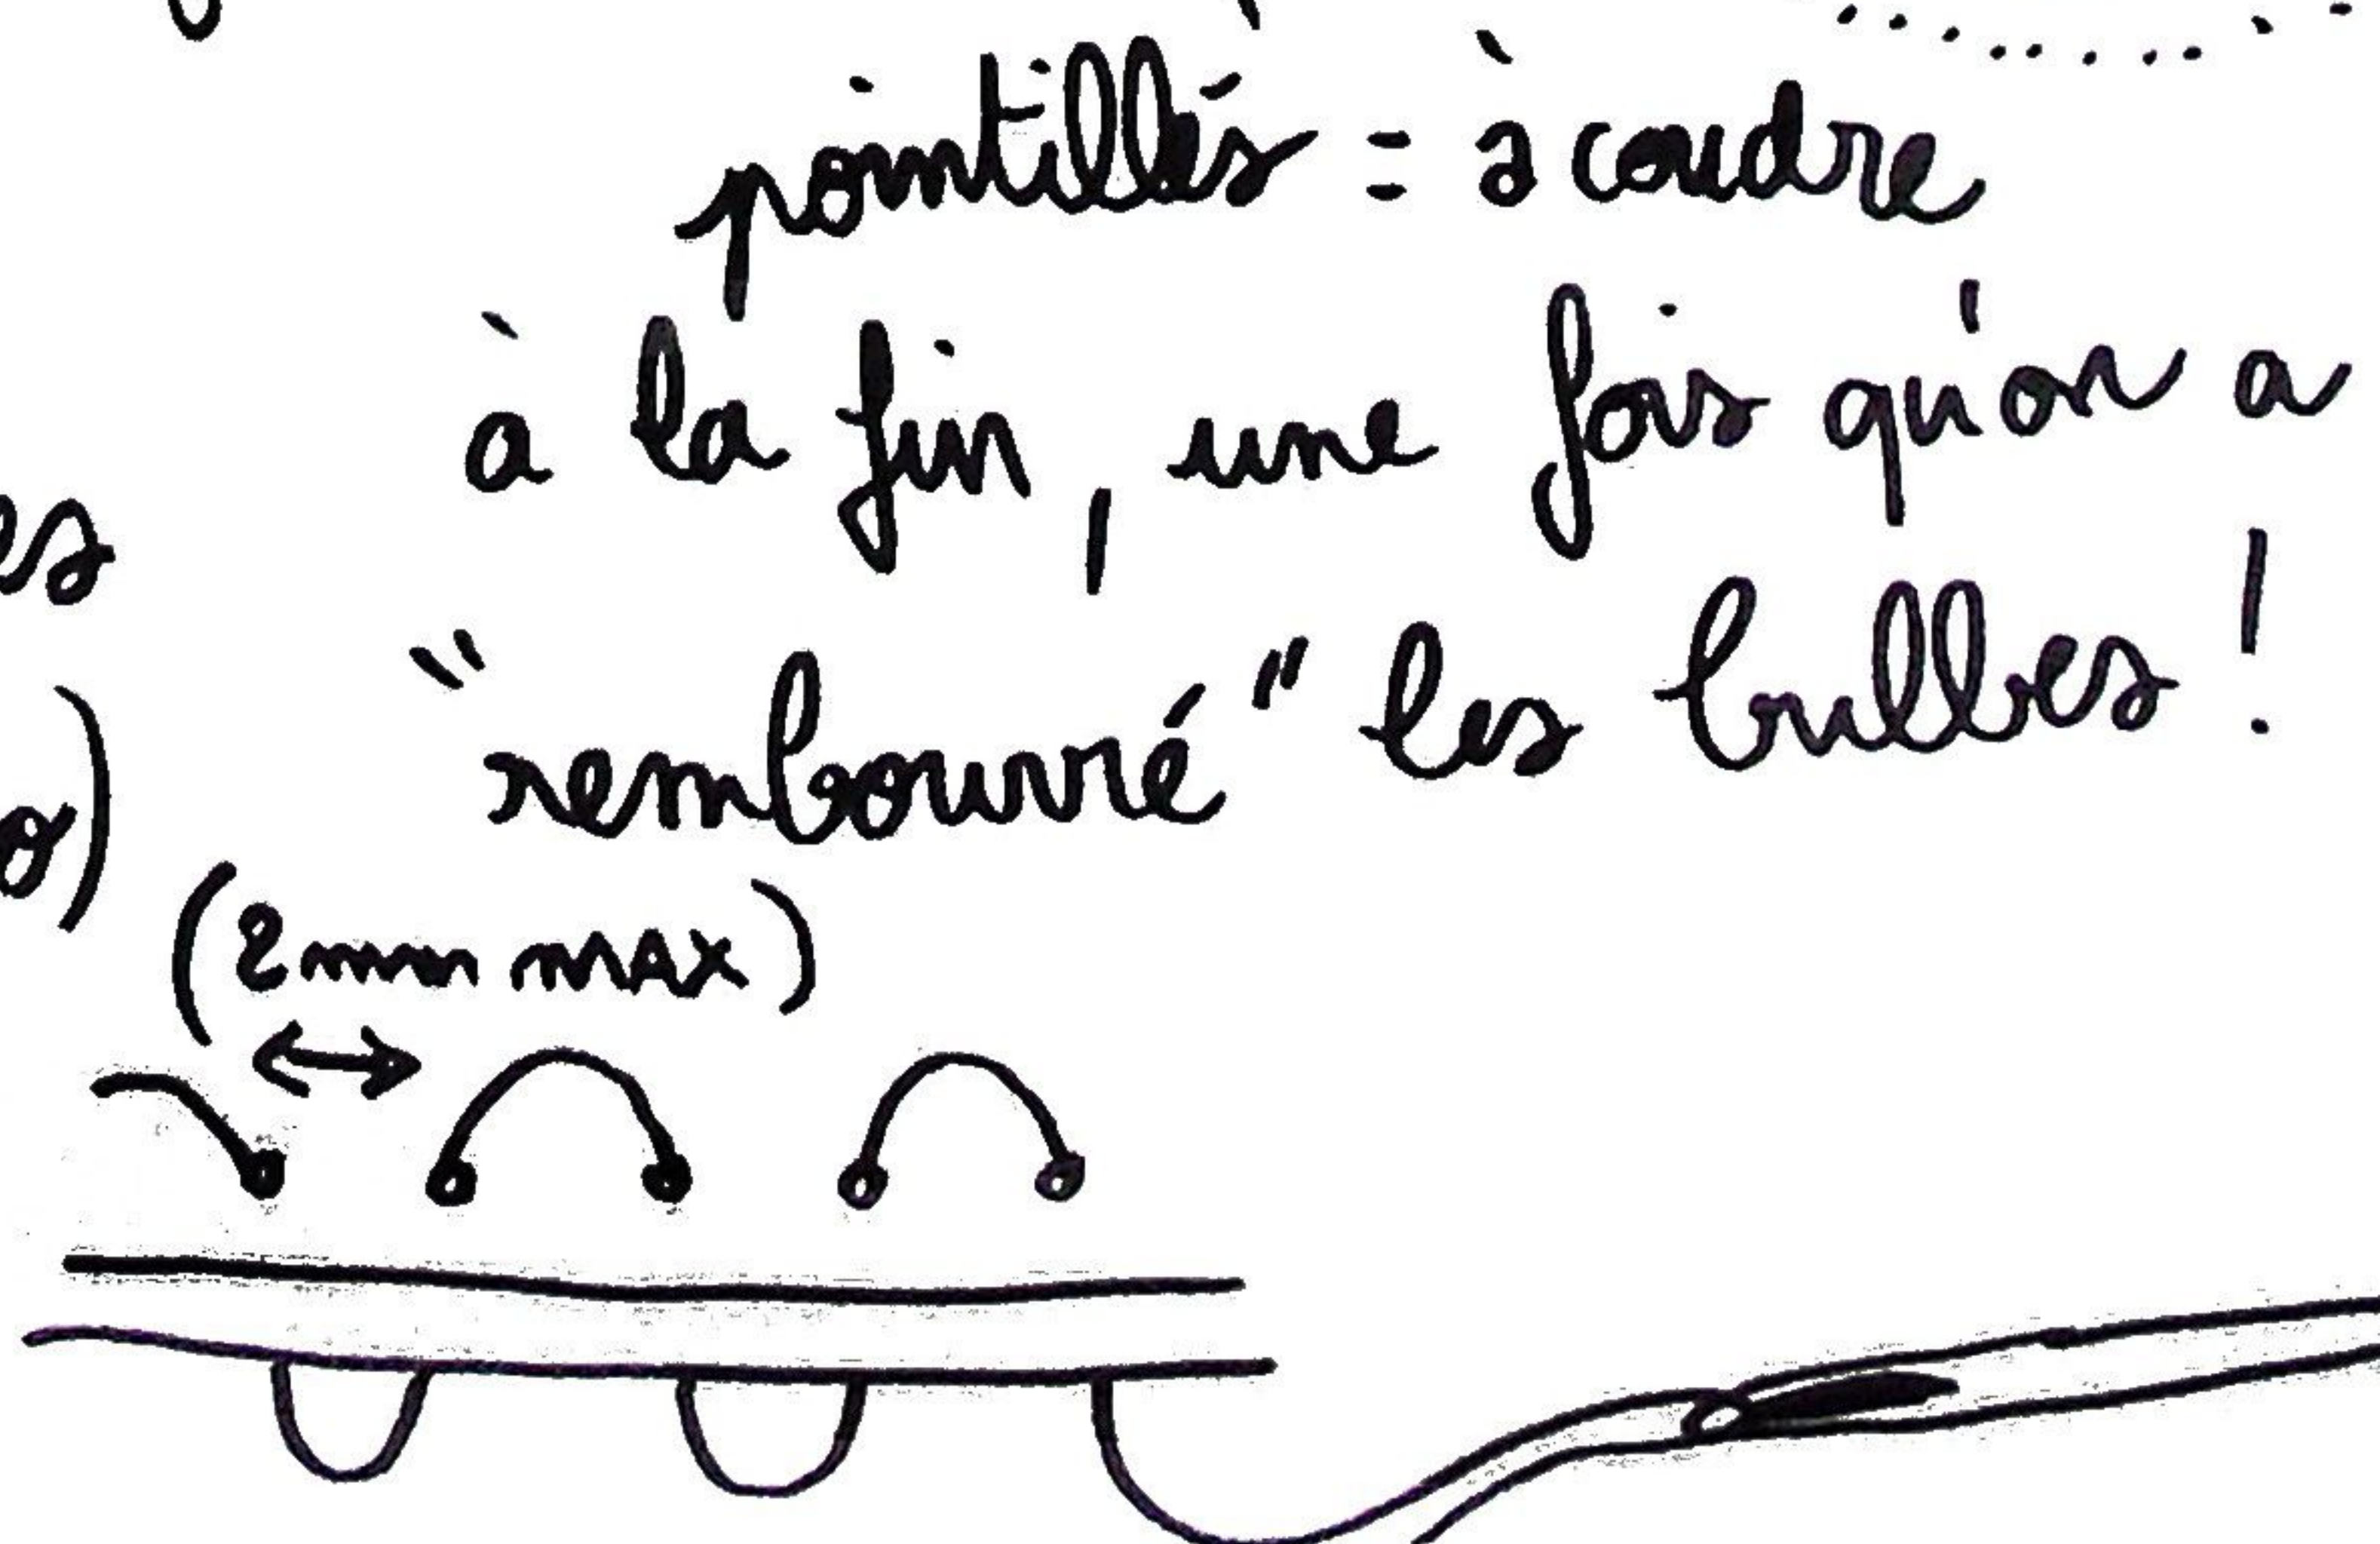 pointillés = à coudre
à la fin, une fois qu'on a
es
"rembourré" les bulles !
(2mm MAX)